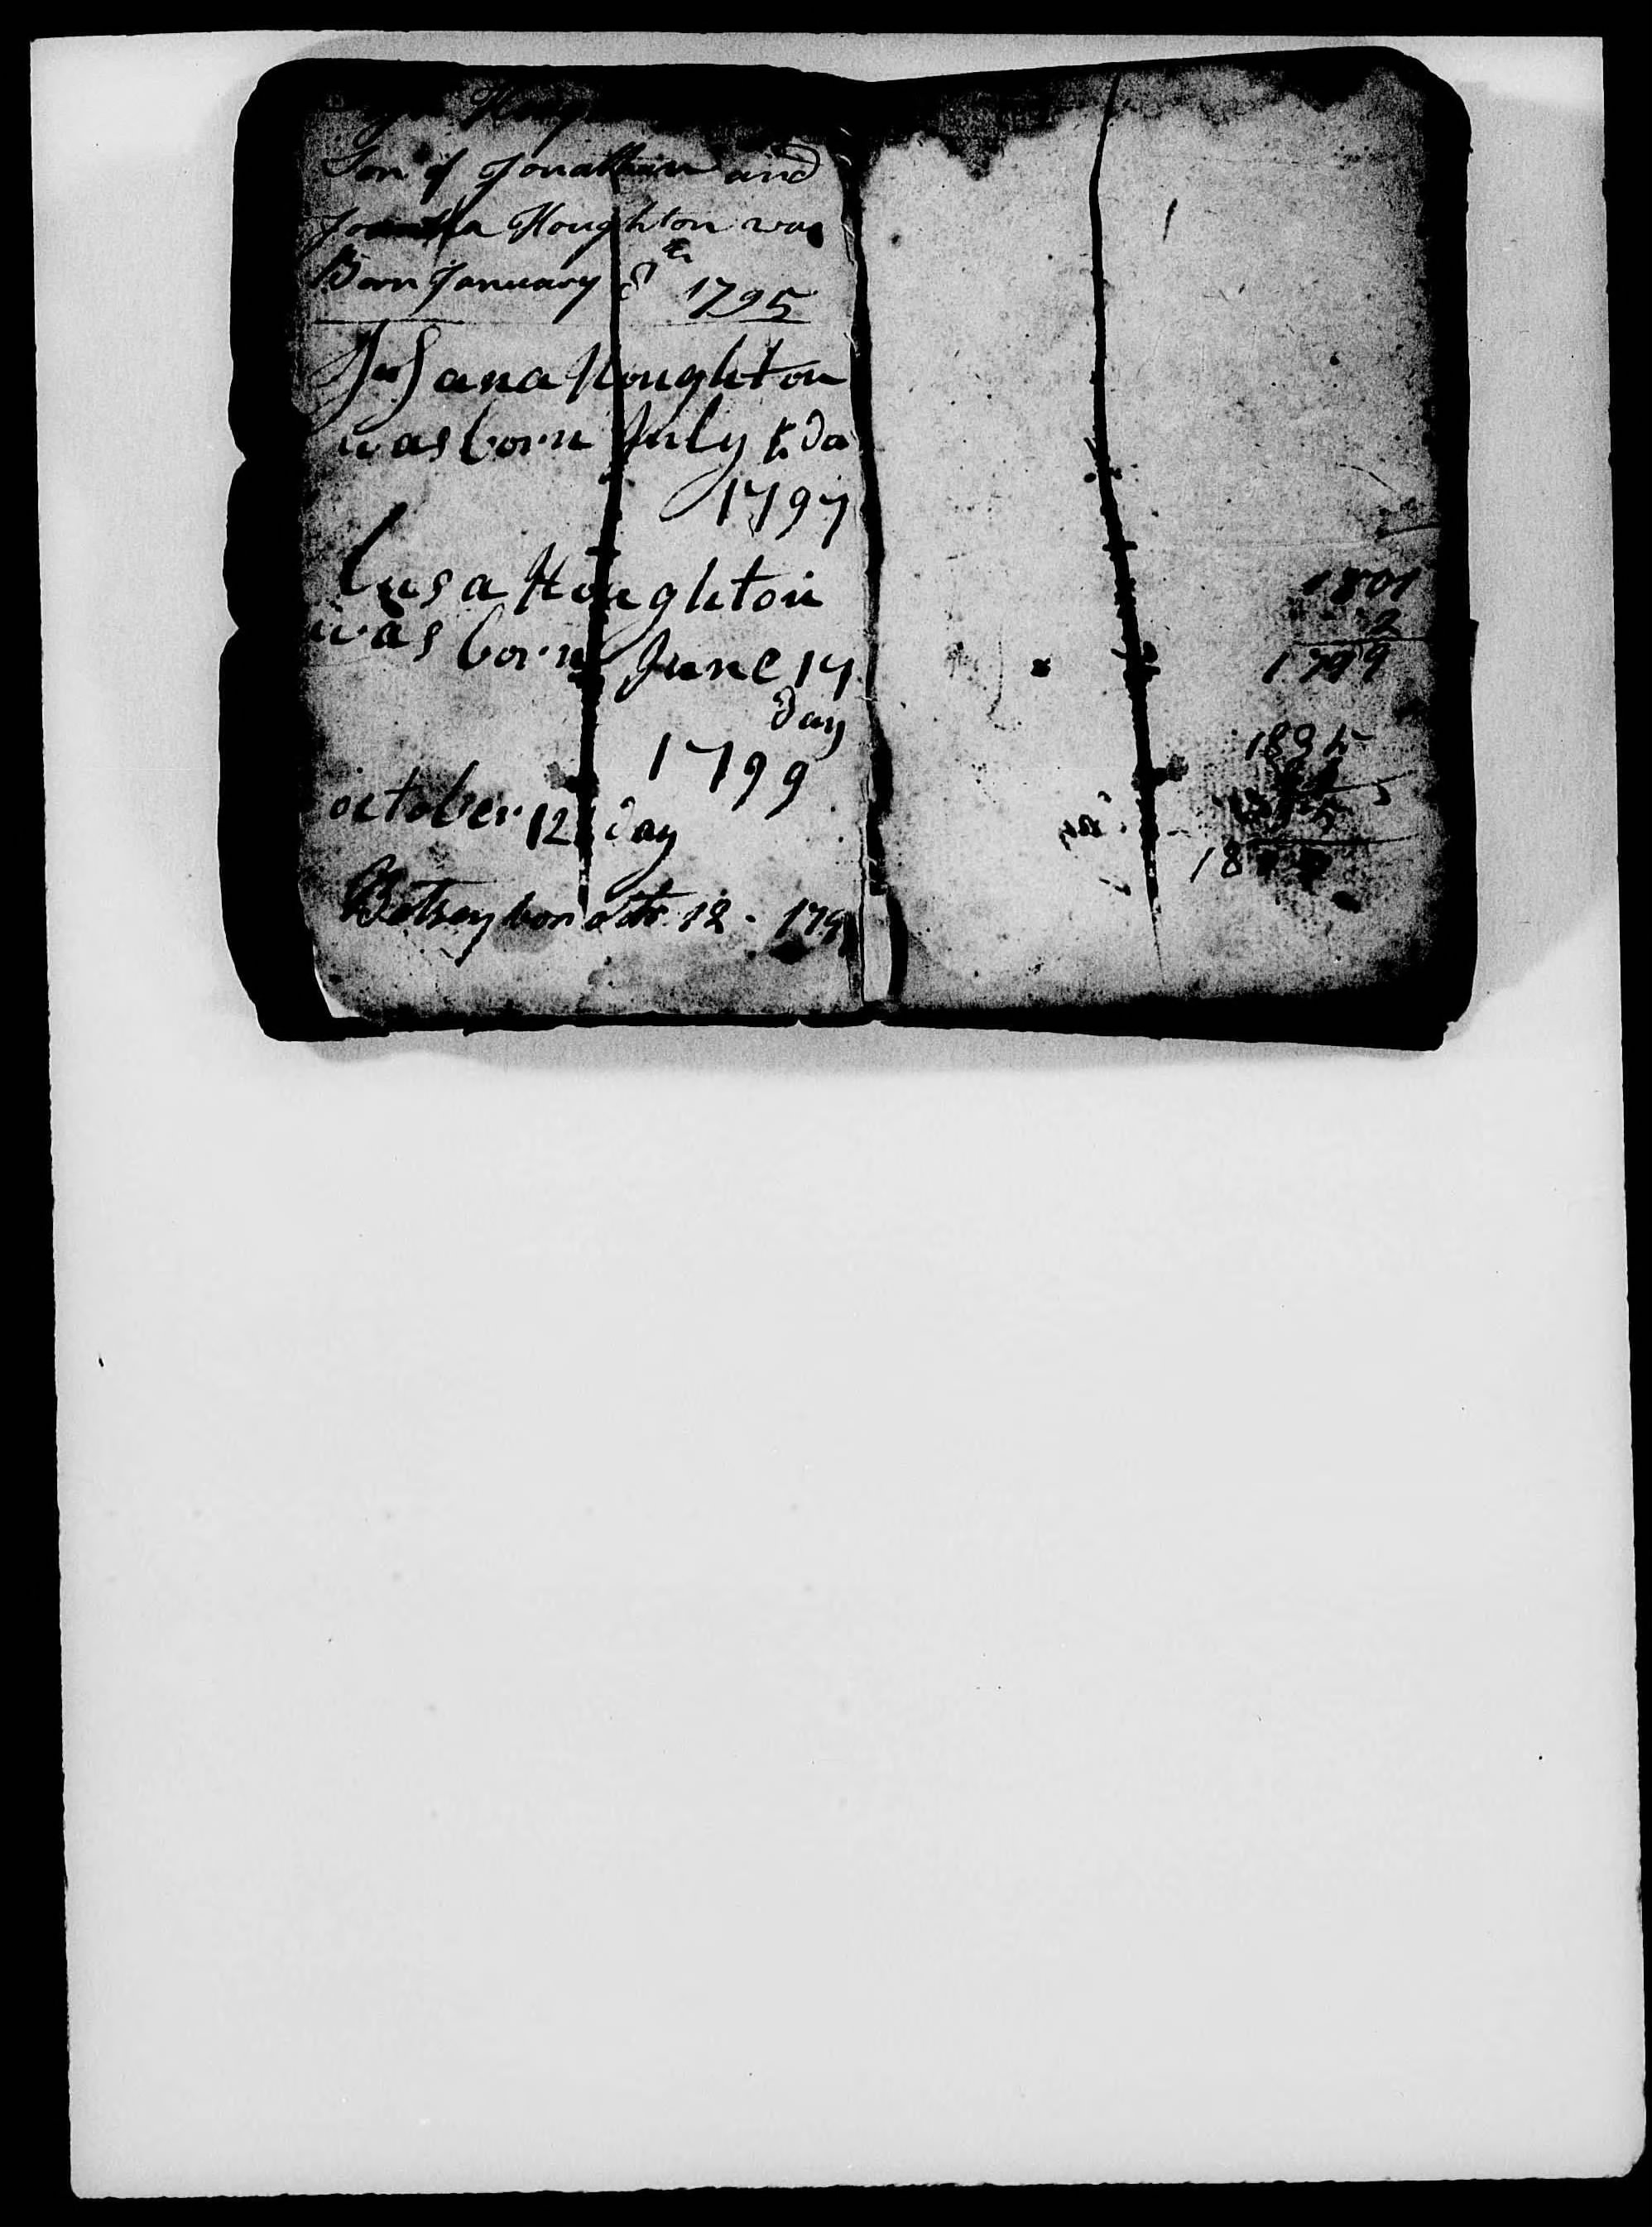 Son of Jonathan and
Houghton was
Born January 8th 1795
Houghton
was born July da
1797
Lusa Houghton
was born June 17
day
1799
october 12 day
Betsey born octr 12 - 179
1801
2
1799
1835
18